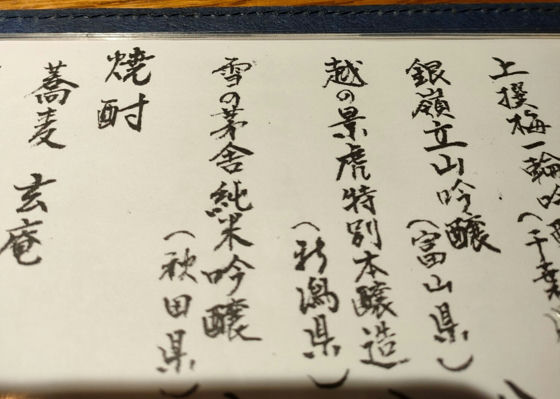 上撰梅一輪吟醸
（千葉
銀嶺立山吟醸
（富山県）
越の景虎特別本醸造
（新潟県）
雪の茅舎純米吟醸
（秋田県）
焼酎
蕎麦 玄庵